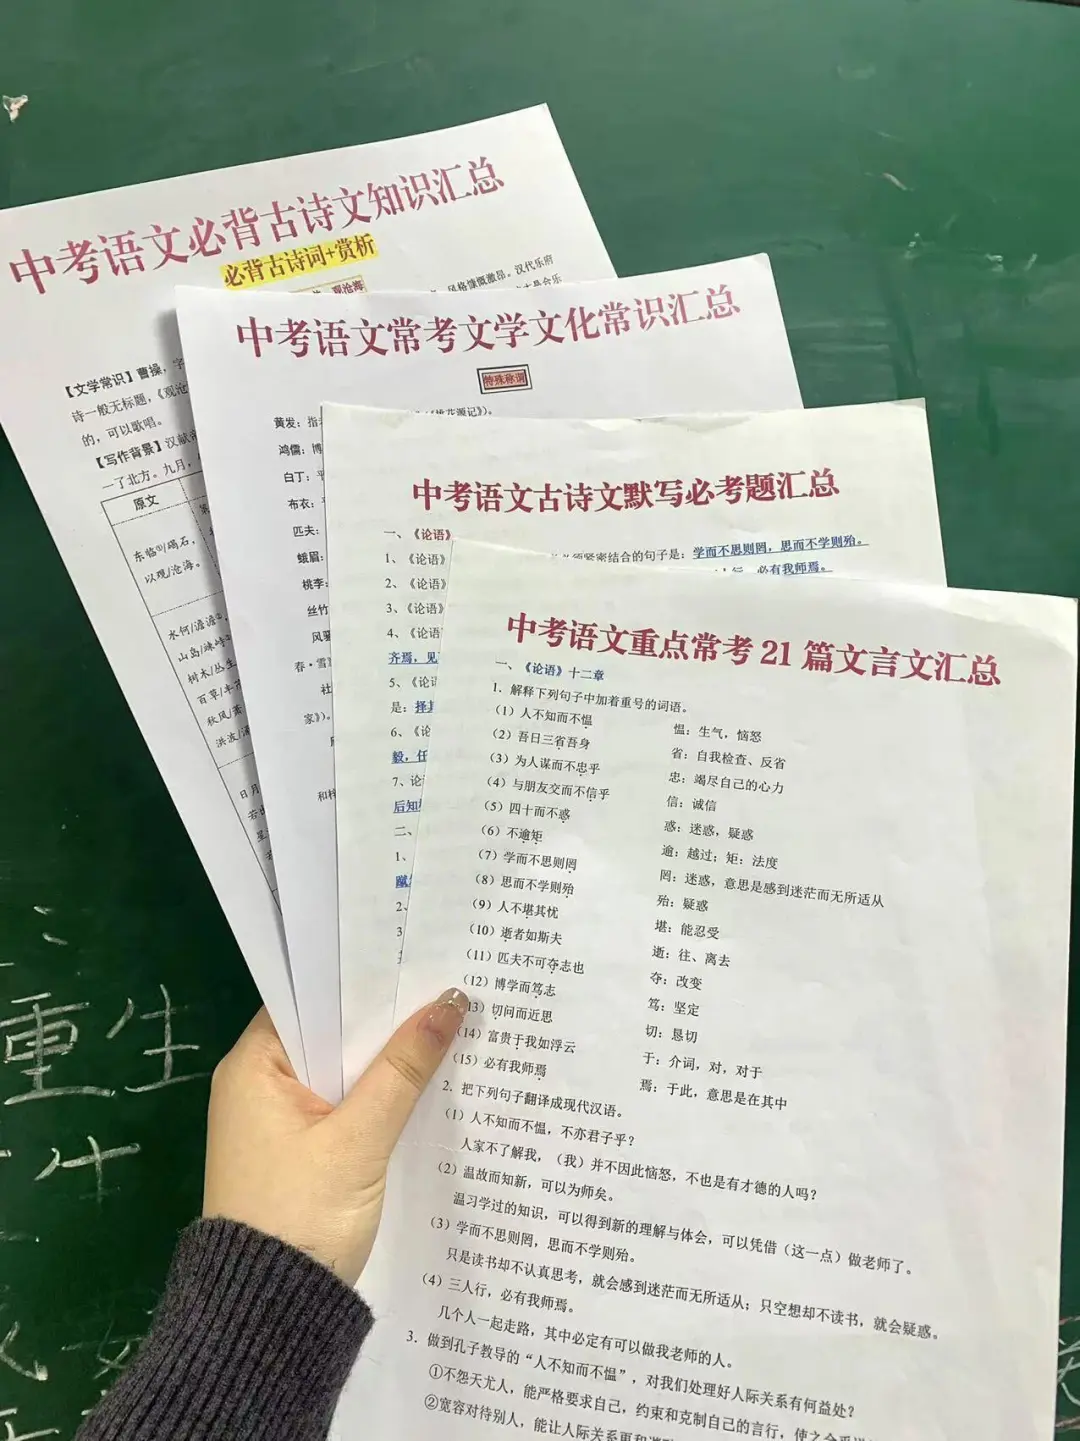 中考语文必背古诗文知识汇总
必背古诗词+赏析
观沧海
风格慷慨激昂。汉代乐府
【文学常识】曹操，字
诗一般无标题，《观沧
的，可以歌唱。
【写作背景】汉献帝
一了北方。九月，
原文
东临①/碣石，
以观/沧海。
水何/澹澹②，
山岛/竦峙
树木/丛生
百草/丰茂
秋风/萧
洪波/涌
日月
若
星
中考语文常考文学文化常识汇总
特殊称谓
黄发：指
桃花源记》）。
鸿儒：博
白丁：平
布衣：
匹夫：
蛾眉：
桃李：
丝竹
风骚
春·雪
社
家》）。
和
中考语文古诗文默写必考题汇总
一、《论语》
1、《论语》
须紧密结合的句子是：学而不思则罔，思而不学则殆。
2、《论语》
必有我师焉。
3、《论语》
4、《论语
齐焉，见
5、《论语
是：择其
6、《论
毅，任
7、论
后知
二、
1、
2、
3
中考语文重点常考 21 篇文言文汇总
一、《论语》十二章
1. 解释下列句子中加着重号的词语。
（1）人不知而不愠 愠：生气，恼怒
（2）吾日三省吾身 省：自我检查、反省
（3）为人谋而不忠乎 忠：竭尽自己的心力
（4）与朋友交而不信乎 信：诚信
（5）四十而不惑 惑：迷惑，疑惑
（6）不逾矩 逾：越过；矩：法度
（7）学而不思则罔 罔：迷惑，意思是感到迷茫而无所适从
（8）思而不学则殆 殆：疑惑
（9）人不堪其忧 堪：能忍受
（10）逝者如斯夫 逝：往、离去
（11）匹夫不可夺志也 夺：改变
（12）博学而笃志 笃：坚定
13）切问而近思 切：恳切
（14）富贵于我如浮云 于：介词，对，对于
（15）必有我师焉 焉：于此，意思是在其中
2. 把下列句子翻译成现代汉语。
（1）人不知而不愠，不亦君子乎？
人家不了解我，（我）并不因此恼怒，不也是有才德的人吗？
（2）温故而知新，可以为师矣。
温习学过的知识，可以得到新的理解与体会，可以凭借（这一点）做老师了。
（3）学而不思则罔，思而不学则殆。
只是读书却不认真思考，就会感到迷茫而无所适从；只空想却不读书，就会疑惑。
（4）三人行，必有我师焉。
几个人一起走路，其中必定有可以做我老师的人。
3. 做到孔子教导的“人不知而不愠”，对我们处理好人际关系有何益处？
①不怨天尤人，能严格要求自己，约束和克制自己的言行，使之合乎
②宽容对待别人，能让人际关系更和
重生